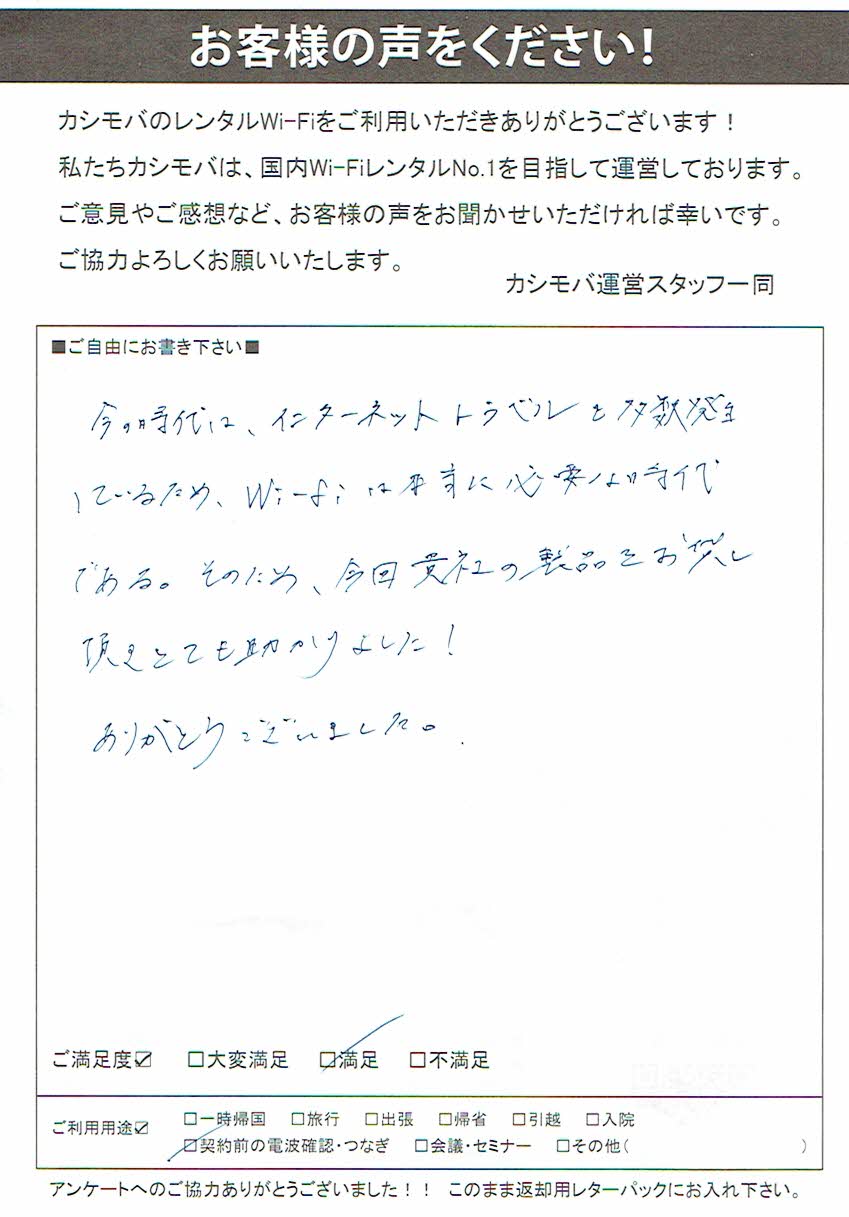 お客様の声をください!
カシモバのレンタルWi-Fiをご利用いただきありがとうございます!
私たちカシモバは、国内Wi-FiレンタルNo.1を目指して運営しております。
ご意見やご感想など、お客様の声をお聞かせいただければ幸いです。
ご協力よろしくお願いいたします。
カシモバ運営スタッフ一同
■ご自由にお書き下さい■
今の時代は、インターネットトラベルも多数発生
しているため、Wi-fiは本当に必要な時代
である。そのため、今回貴社の製品をお貸し
頂きとても助かりました!
ありがとうございました。
ご満足度☑ □大変満足 ☑満足 □不満足
ご利用用途☑ □一時帰国 □旅行 □出張 □帰省 □引越 □入院
☑契約前の電波確認・つなぎ □会議・セミナー □その他( )
アンケートへのご協力ありがとうございました!! このまま返却用レターパックにお入れ下さい。